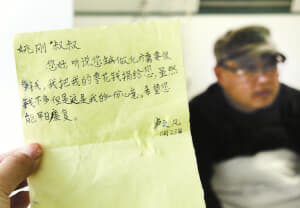 姚刚叔叔
您好听说您病做化疗需要很
多钱，我把我的零花钱捐给您，虽然
钱不多但是这是我的一份心意。希望您
能早日康复。